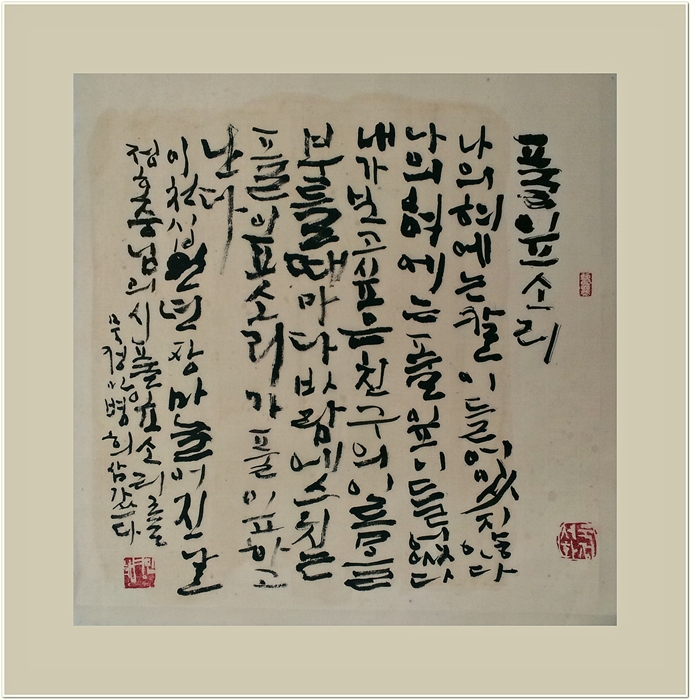 풀잎소리
나의 혀에는 칼이 들어 있지 않다
나의 혀에는 풀잎이 들어있다
내가 보고싶은 친구의 이름을
부를 때마다 바람에 스치는
풀잎소리가 풀잎하고
난다
이천십일년 장마 늘어진 날
정호승님의 시 풀잎소리를
병희 삼가쓰다